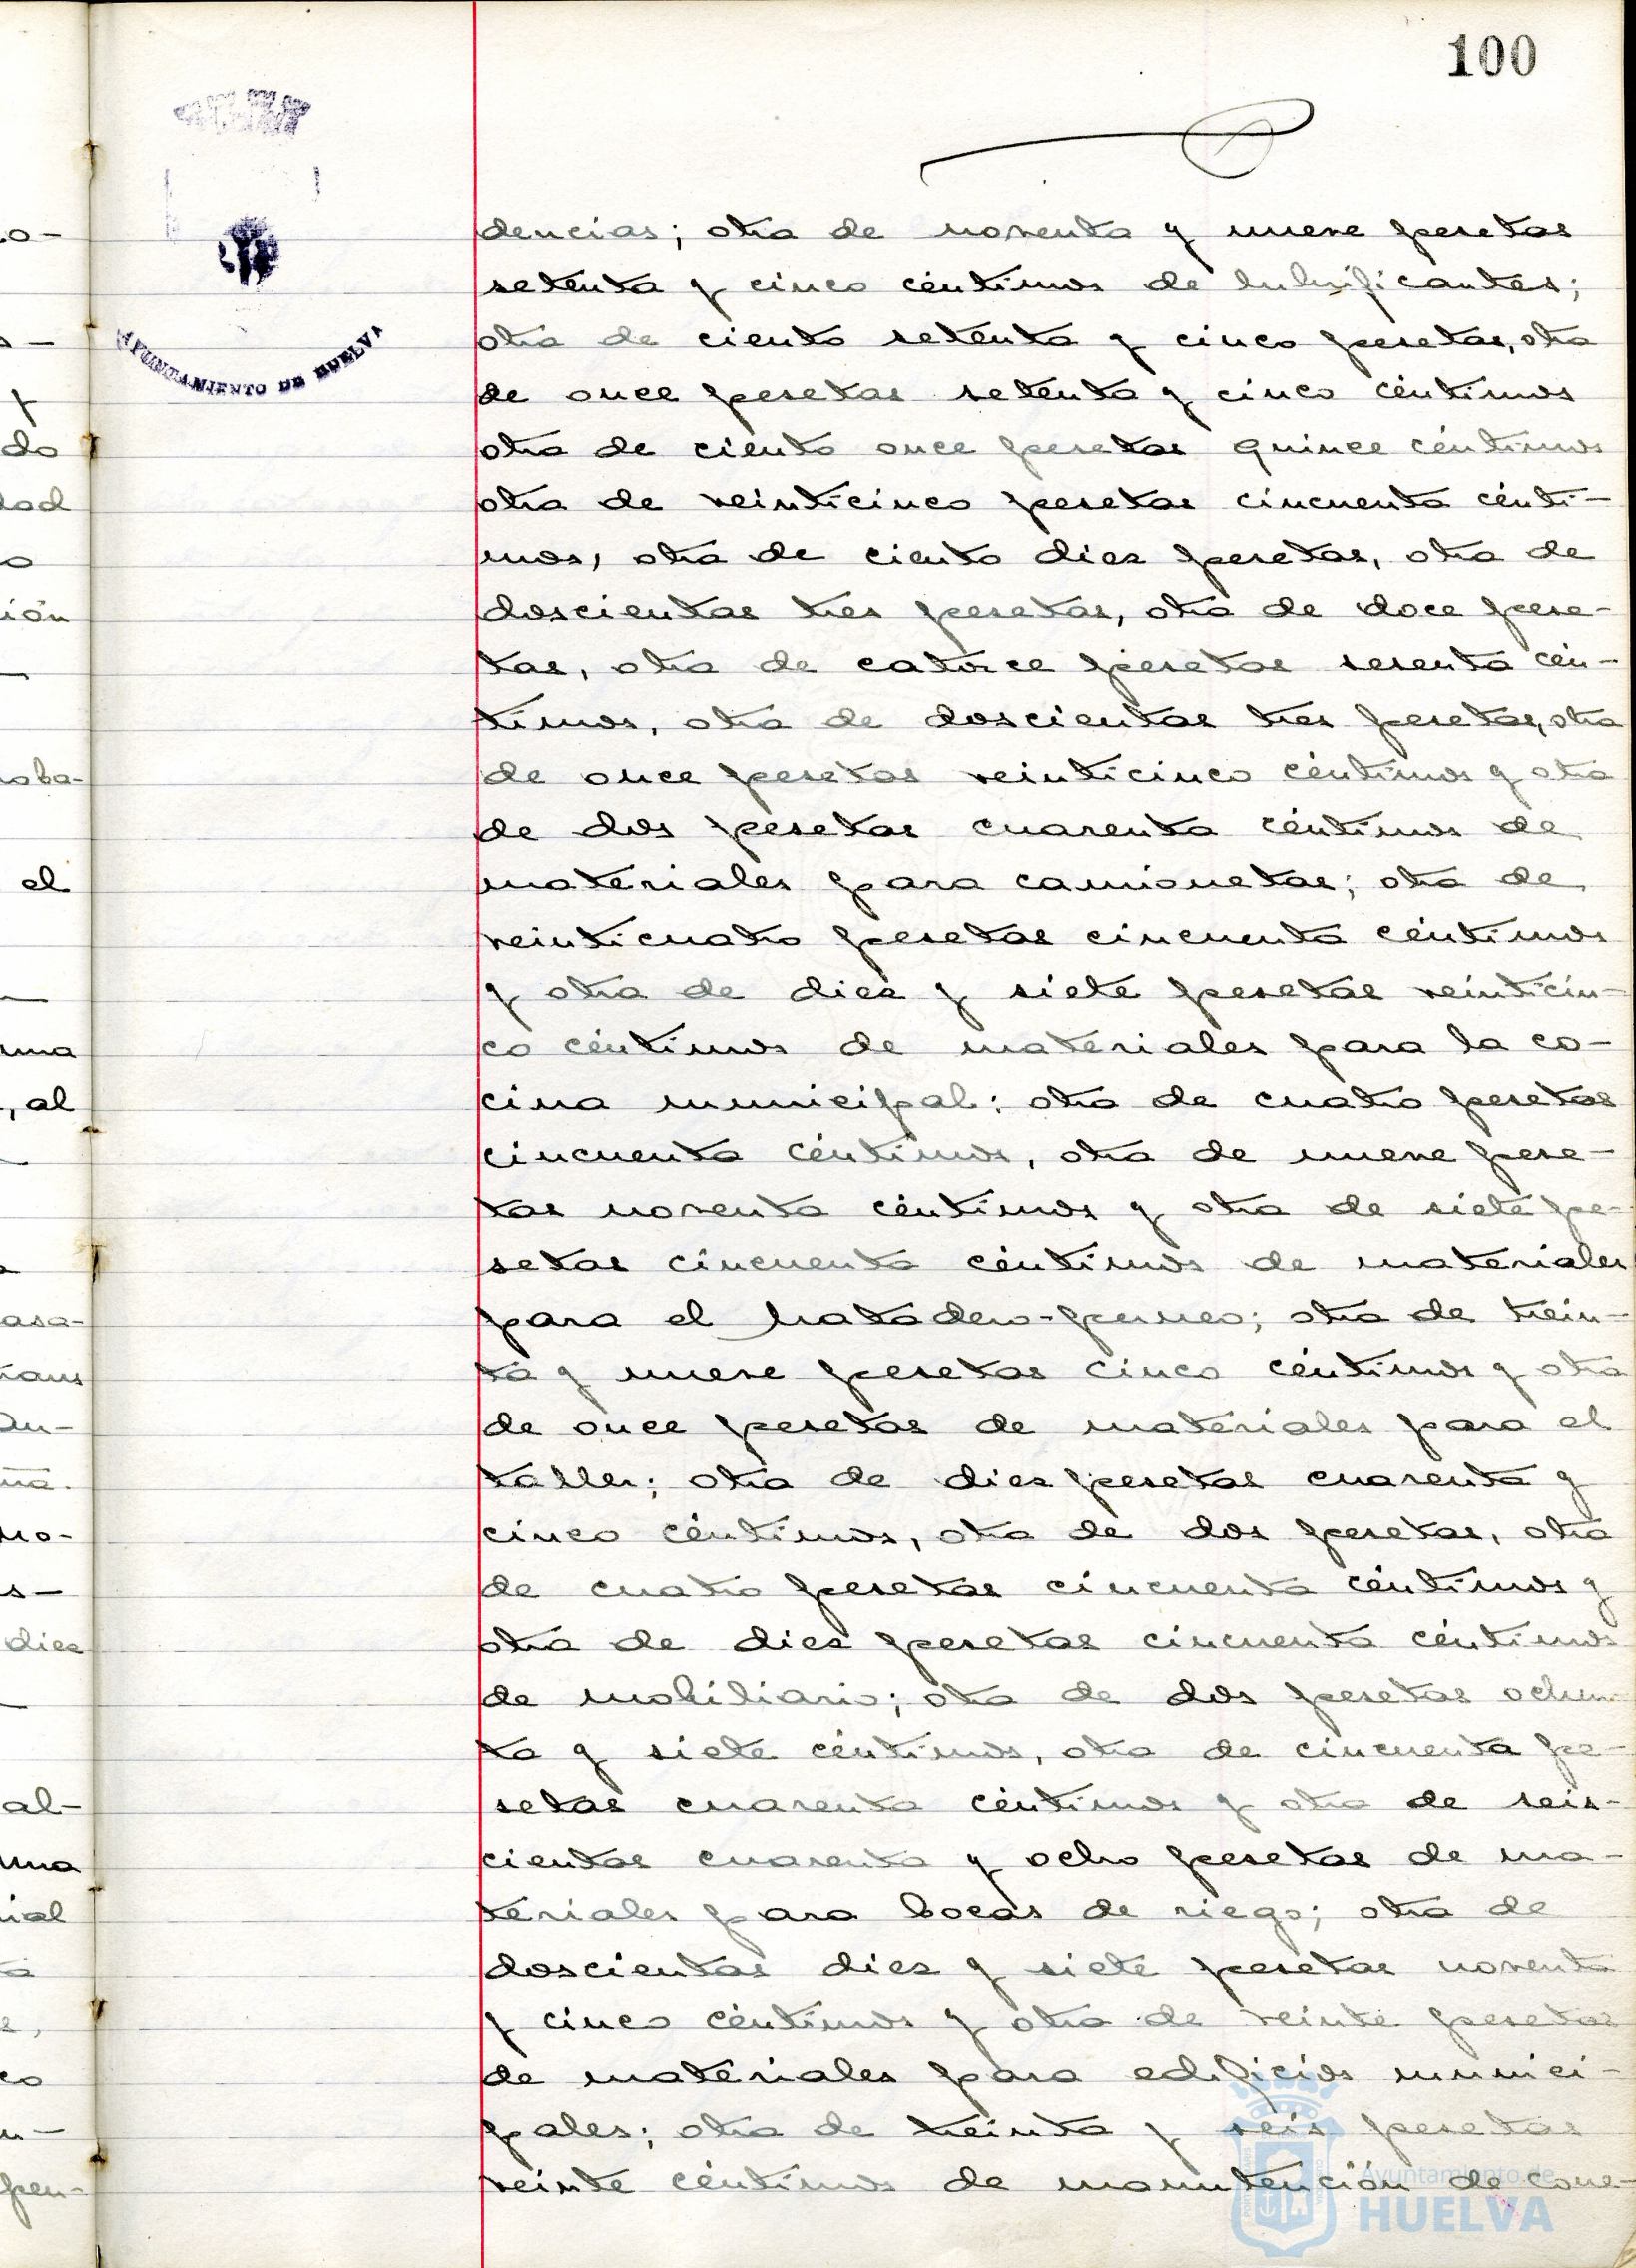 100
AYUNTAMIENTO DE HUELVA
dencias; otra de noventa y nueve pesetas
setenta y cinco céntimos de lubrificantes;
otra de ciento setenta y cinco pesetas, otra
de once pesetas setenta y cinco céntimos
otra de ciento once pesetas quince céntimos
otra de veinticinco pesetas cincuenta cénti-
mos, otra de ciento diez pesetas, otra de
doscientas tres pesetas, otra de doce pese-
tas, otra de catorce pesetas sesenta cén-
timos, otra de doscientas tres pesetas, otra
de once pesetas veinticinco céntimos y otra
de dos pesetas cuarenta céntimos de
materiales para camionetas; otra de
veinticuatro pesetas cincuenta céntimos
y otra de diez y siete pesetas veinticin-
co céntimos de materiales para la co-
cina municipal; otra de cuatro pesetas
cincuenta céntimos, otra de nueve pese-
tas noventa céntimos y otra de siete pe-
setas cincuenta céntimos de materiales
para el matadero-perreo; otra de trein-
ta y nueve pesetas cinco céntimos y otra
de once pesetas de materiales para el
taller; otra de diez pesetas cuarenta y
cinco céntimos, otra de dos pesetas, otra
de cuatro pesetas cincuenta céntimos y
otra de diez pesetas cincuenta céntimos
de mobiliario; otra de dos pesetas ochen-
ta y siete céntimos, otra de cincuenta pe-
setas cuarenta céntimos y otra de seis-
cientas cuarenta y ocho pesetas de ma-
teriales para bocas de riego; otra de
doscientas diez y siete pesetas noventa
y cinco céntimos y otra de veinte pesetas
de materiales para edificios munici-
pales; otra de treinta y seis pesetas
veinte céntimos de manutención de cone-
Ayuntamiento de
HUELVA